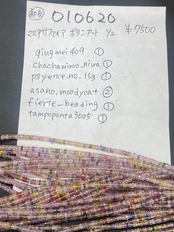 010620
マルチサファイア ボタンカット 1/2 ¥7500
qiugmei409 ①
chachawimo.niwa ①
psyence.no.15g ①
asano.moodycat ②
fierte_beading ①
tampoponta3005 ①